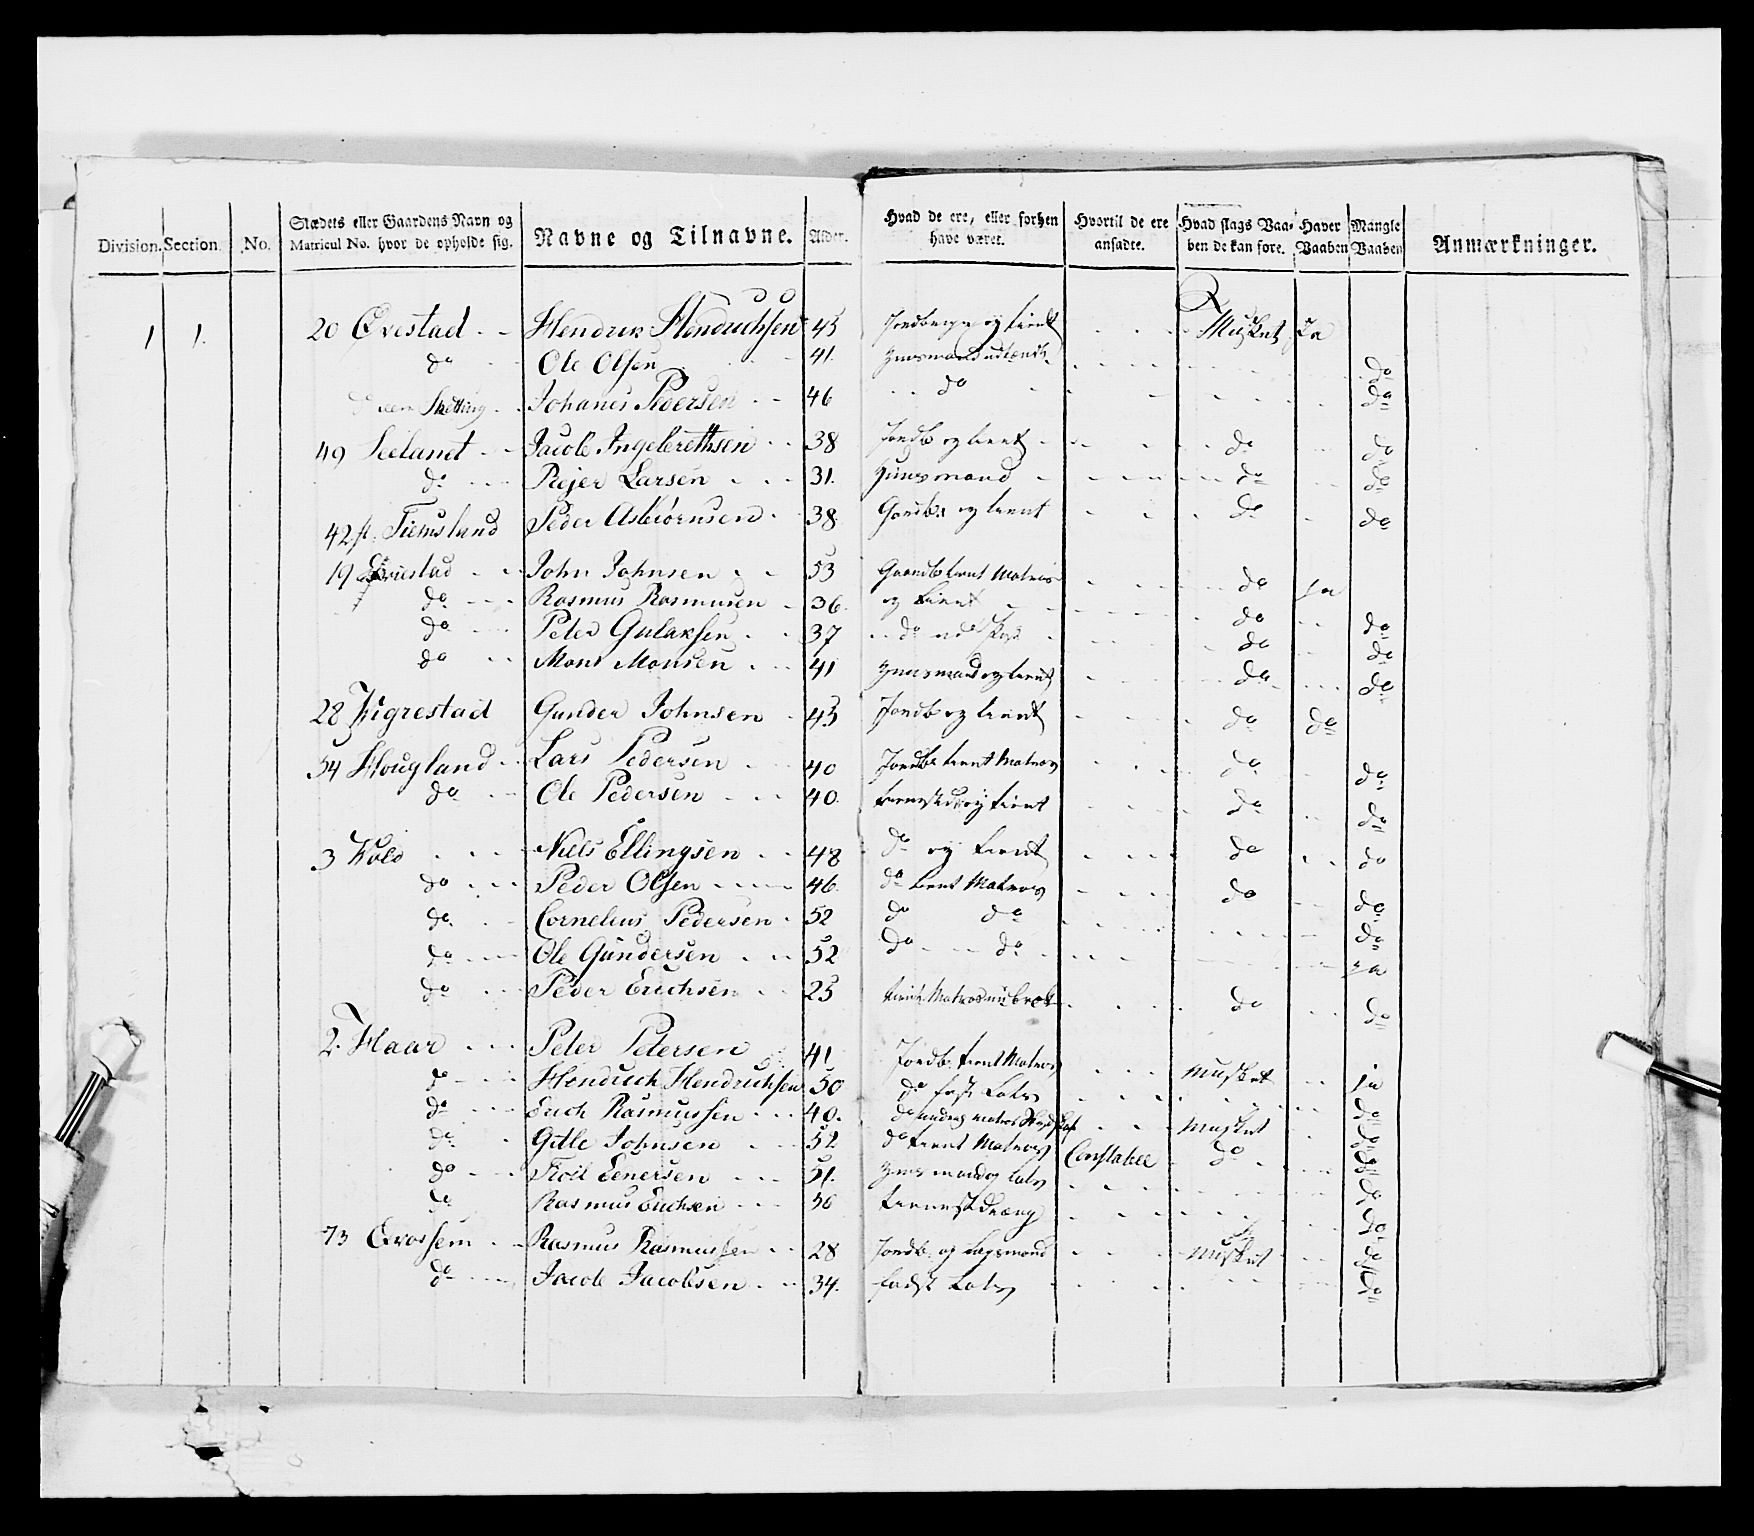 Division. Section. No. Stædets eller Gaardens Navn og Matricul No. hvor de opholde sig. Navne og Tilnavne. Alder. Hvad de ere, eller forhen have været. Hvortil de ere ansadte. Hvad slags Vaaben de kan føre. Haver Vaaben Mangle Vaaben Anmærkninger.
1 1. 20 Evestad Hendrik Hendrichsen 43 Jordbruger og tient Musket Ja
do Ole Olsen 41. Huusmand do
Johanes Pedersen 46 do do
49 Leeland Jacob Ingebrethsen 38 Jordb og tient do do
do Rejer Larsen 31. Huusmand do do
42 Tiemsland Peder Asbiørnsen 38 Gaardbr og tient do do
19 John Johnsen 53 Gaardb tient Matros do ja
do Rasmus Rasmusen 36. og tient do do
do Peter Gulaksen 37 do do do
do Mons Monsen 41 Huusmand og tient do do
28 Kigrestad Gunder Johnsen 43 Jordb og tient do do
54 Hougland Lars Pedersen 40 Jordb tient Matros do do
do Ole Pedersen 40. og tient do do
3 Wold Niels Ellingsen 48 do og tient do do
do Peder Olsen 46. do tient Matros do do
do Cornelius Pedersen 52 do do do
do Ole Gundersen 52 do do ja
do Peder Erichsen 25 tient Matros do do
2. Haar Peter Petersen 41 Jordb. tient Matros Musket ja
do Hendrich Hendrichsen 50 do fast Lots do
do Erich Rasmussen 40. do Musket do
do Gitle Johnsen 52 do tient Matros Constabel do do
do Tioil Eenersen 51. Huusmand og Lots do
do Rasmus Erichsen 30 tienestdreng do
73 Qvassem Rasmus Rasmussen 28 Jordb. og Musket do
do Jacob Jacobsen 34. fadst Lots do